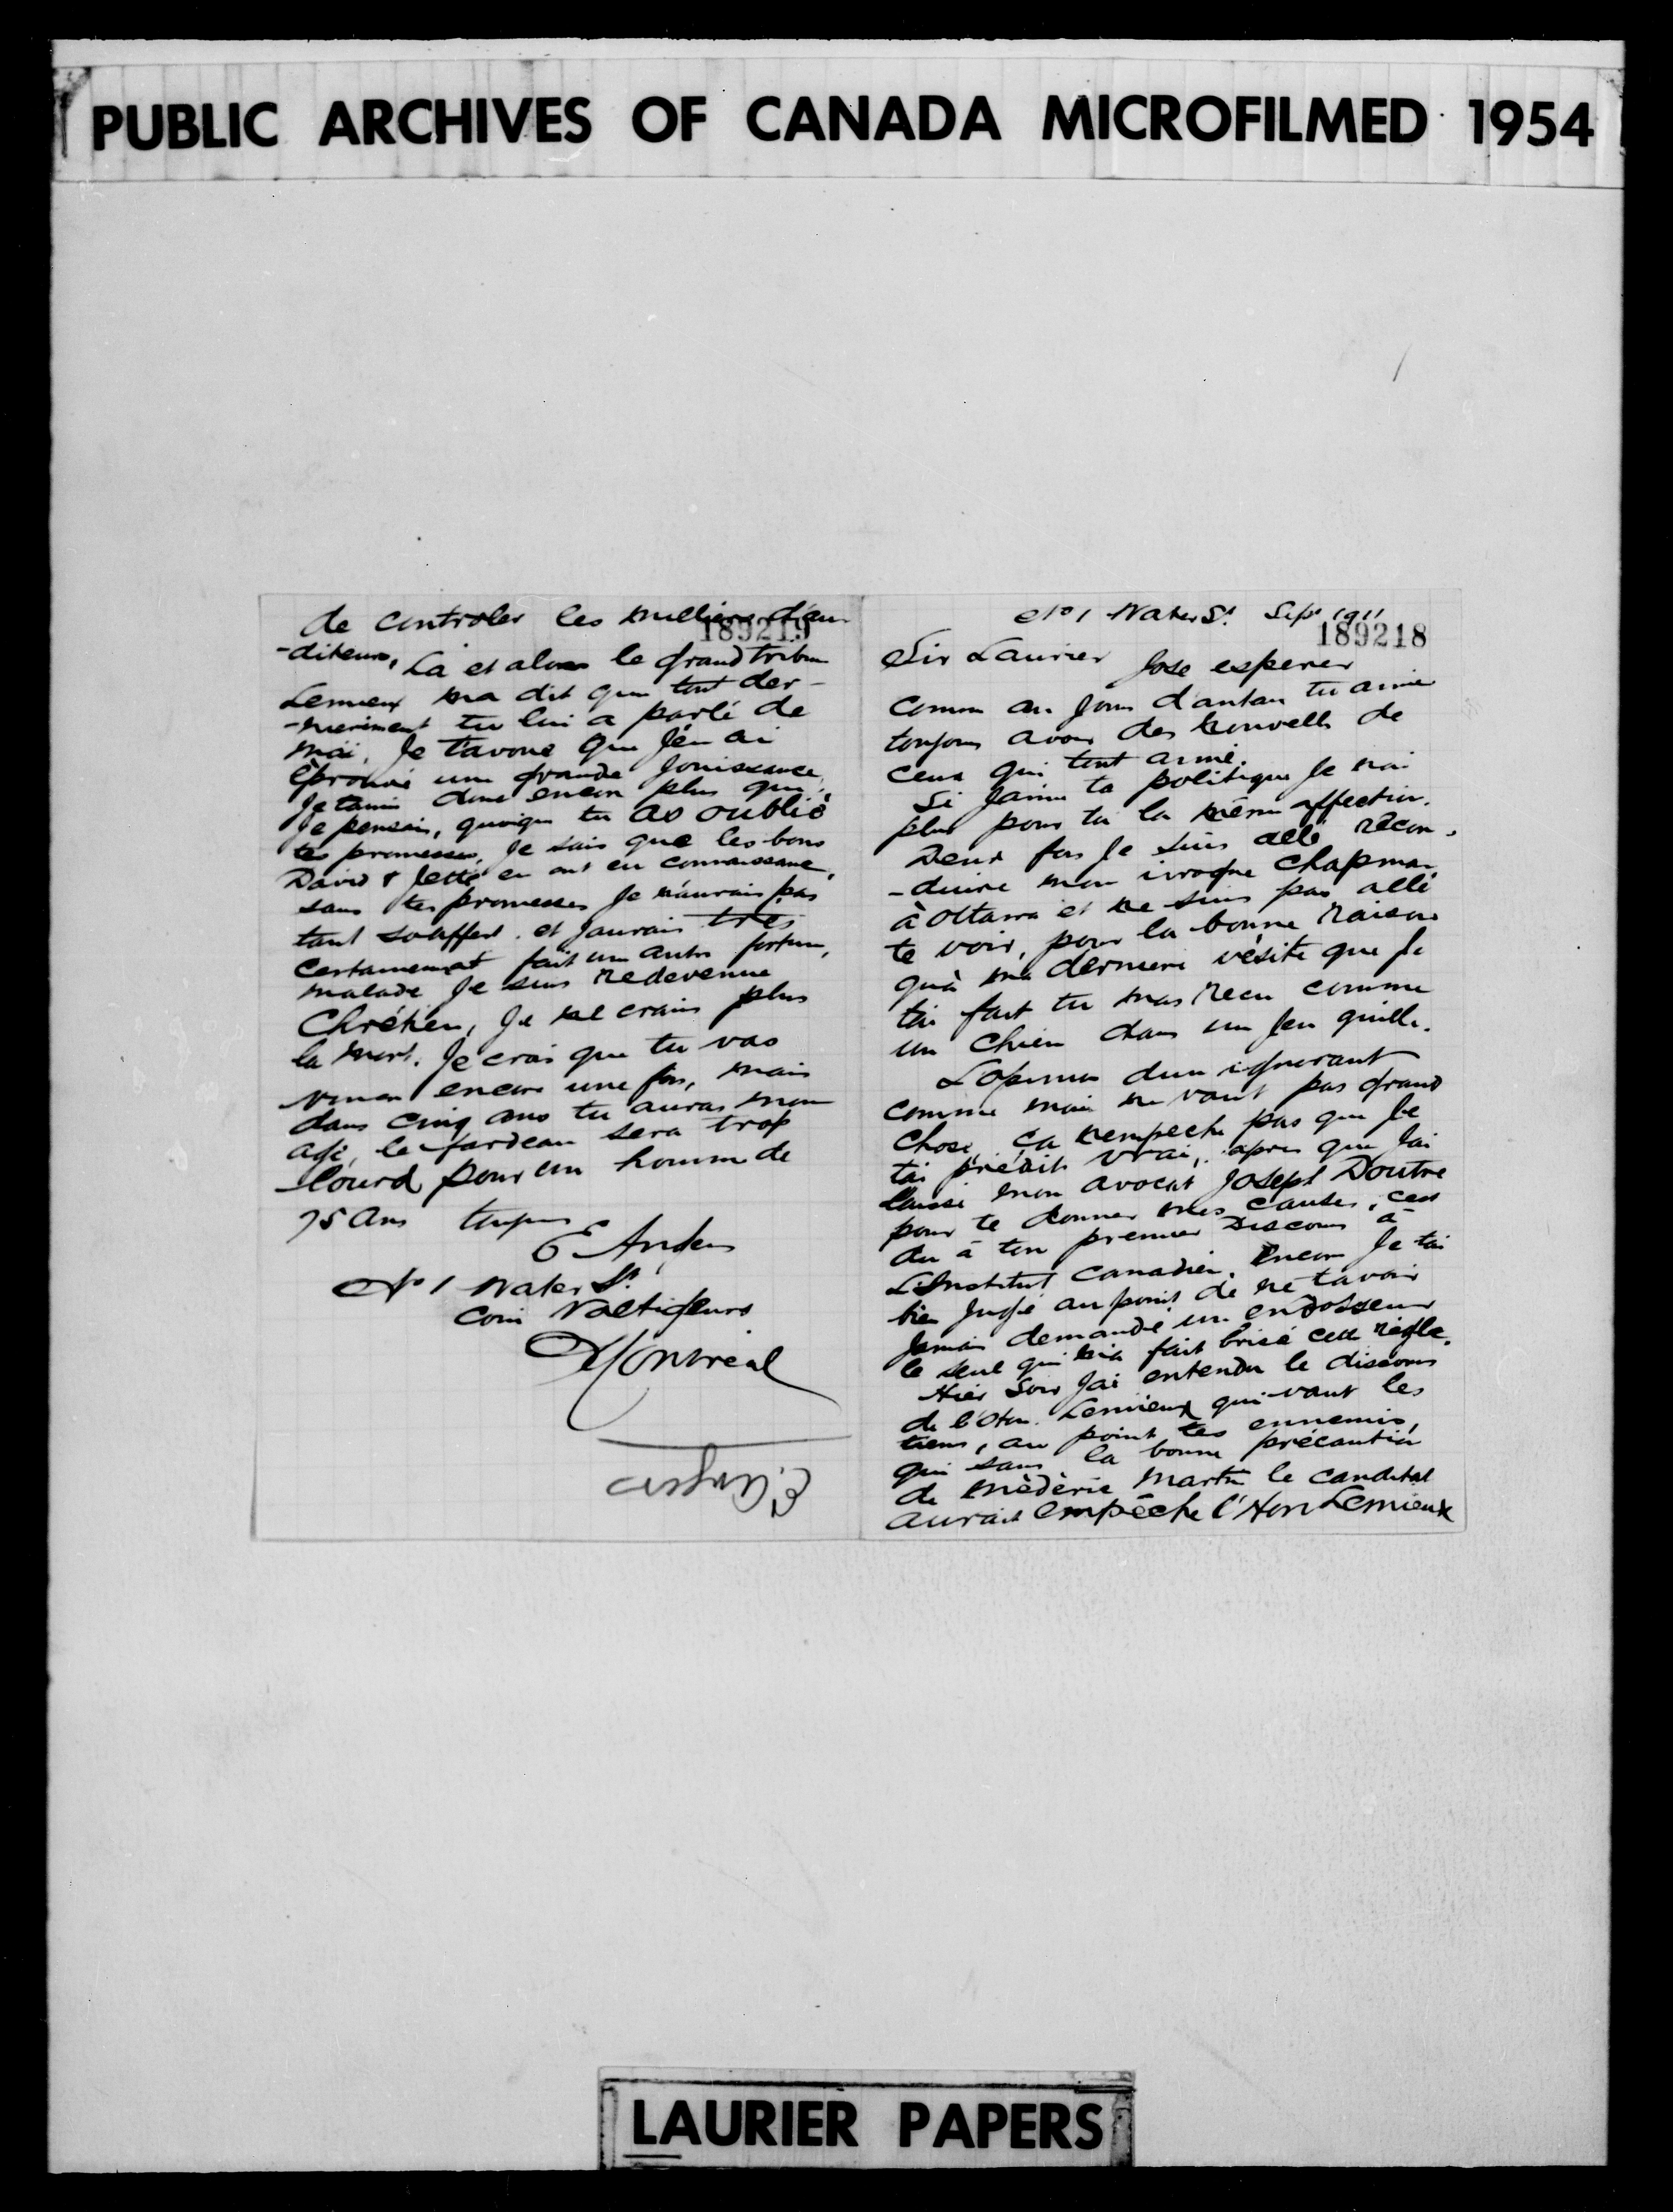 PUBLIC ARCHIVES OF CANADA MICROFILMED 1954
No 1 Water St. Sept 1911
189218
Sir Laurier Jose esperer
comme au jour d'antan tu aime
toujours avoir des nouvelles de
ceux qui tont aimé.
Si jaime ta politique je nai
plus pour toi la même affection.
Deux fois je suis allé récon-
-duire mon ivrogne Chapman
à Ottawa et ne suis pas allé
te voir, pour la bonne raison
qu'à ma derniere vésite que je
tai fait tu mas recu comme
un chien dans un jeu quille.
L'opinion dun ignorant
comme moi ne vaut pas grand
chose, ça nempeche pas que je
tai prédit vrai, apres que jai
laissé mon avocat Joseph Doutre
pour te donner mes causes, cest
du à ton premier Discours à
L'Institut Canadien. Encore je tai
bien jugé au point de ne tavoir
jamais demandé un endosseur
le seul qui fait brisé cette régle.
Hier soir jai entendu le discours
de l'Hon. Lemieux qui vaut les
tiens, au point tes ennemis,
qui sans la bonne précaution
de Médèric Martin le candidat
aurait empêche l'Hon Lemieux
189219
de controler les milliers d'au-
-diteurs, La et alors le grand tribun
Lemieux ma dit que tout der-
-nierement tu lui a parlé de
moi. Je t'avoue que j'en ai
éprouvé une grande jouissance,
Je taime donc encore plus que
je pensais, quoique tu as oublié
tes promesses, je sais que les bons
David & Jetté en ont eu connaissance,
sans tes promesses je n'aurais pas
tant souffert. et jaurais très
certainement fait un autre fortune,
malade je suis redevenue
Chrétien, je ne crains plus
la mort. Je crois que tu vas
encore une fois, mais
dans cinq ans tu auras mon
age, le fardeau sera trop
lourd pour un homme de
75 ans toujours
E Angers
No 1 Water St.
Coin Voltigeurs
Montreal
E. Angers
LAURIER PAPERS